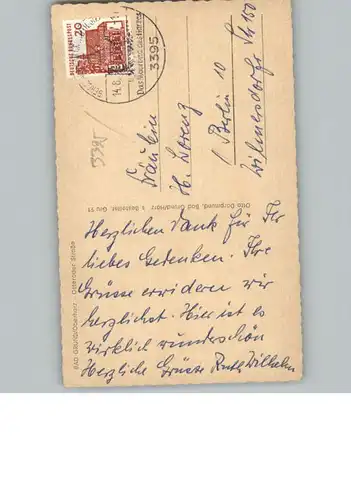 DEUTSCHE BUNDESPOST
20
14.8.
3395
3395
Fräulein
Lorenz
1 Berlin 10
Wilmersdorfer Str 150
Otto Dorgmund, Bad Grund/Harz
BAD GRUND/Oberharz - Osteroder Straße
Herzlichen Dank für Ihr
liebes Gedenken. Ihre
Grüsse erwidern wir
herzlichst. Hier ist es
wirklich wunderschön
Herzliche Grüsse Ruth Wilhelm